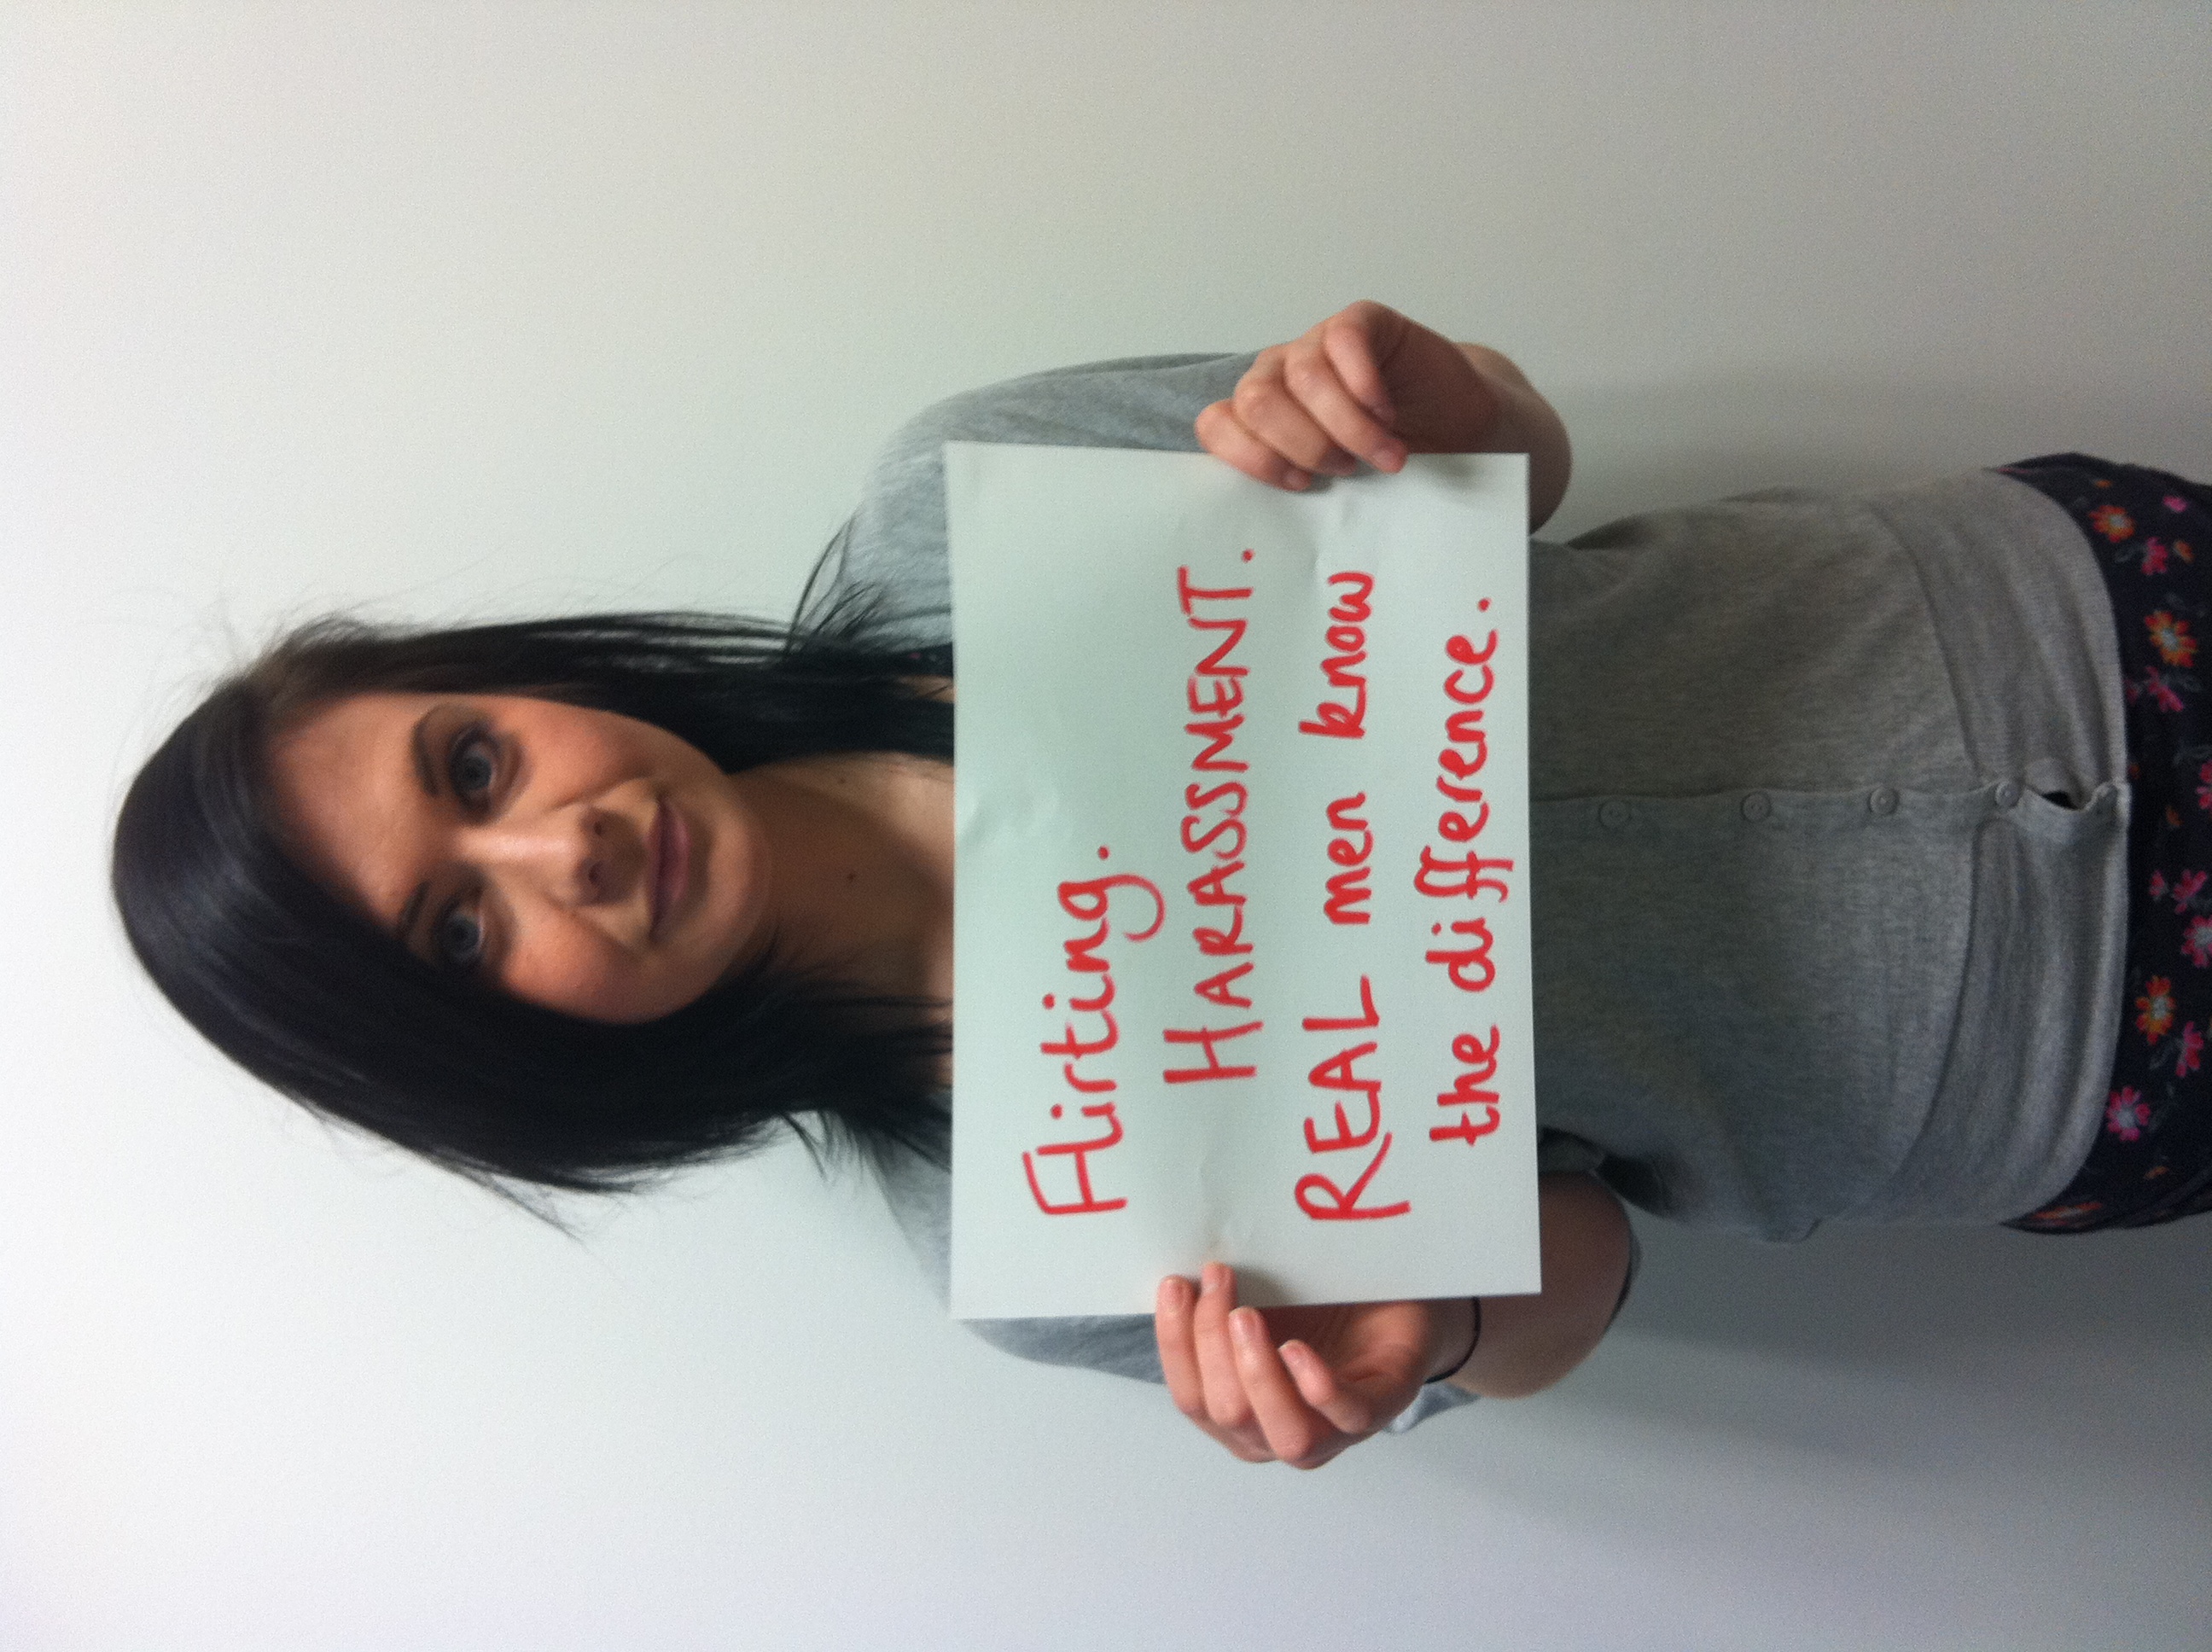 Flirting.
HARASSMENT.
REAL men know
the difference.